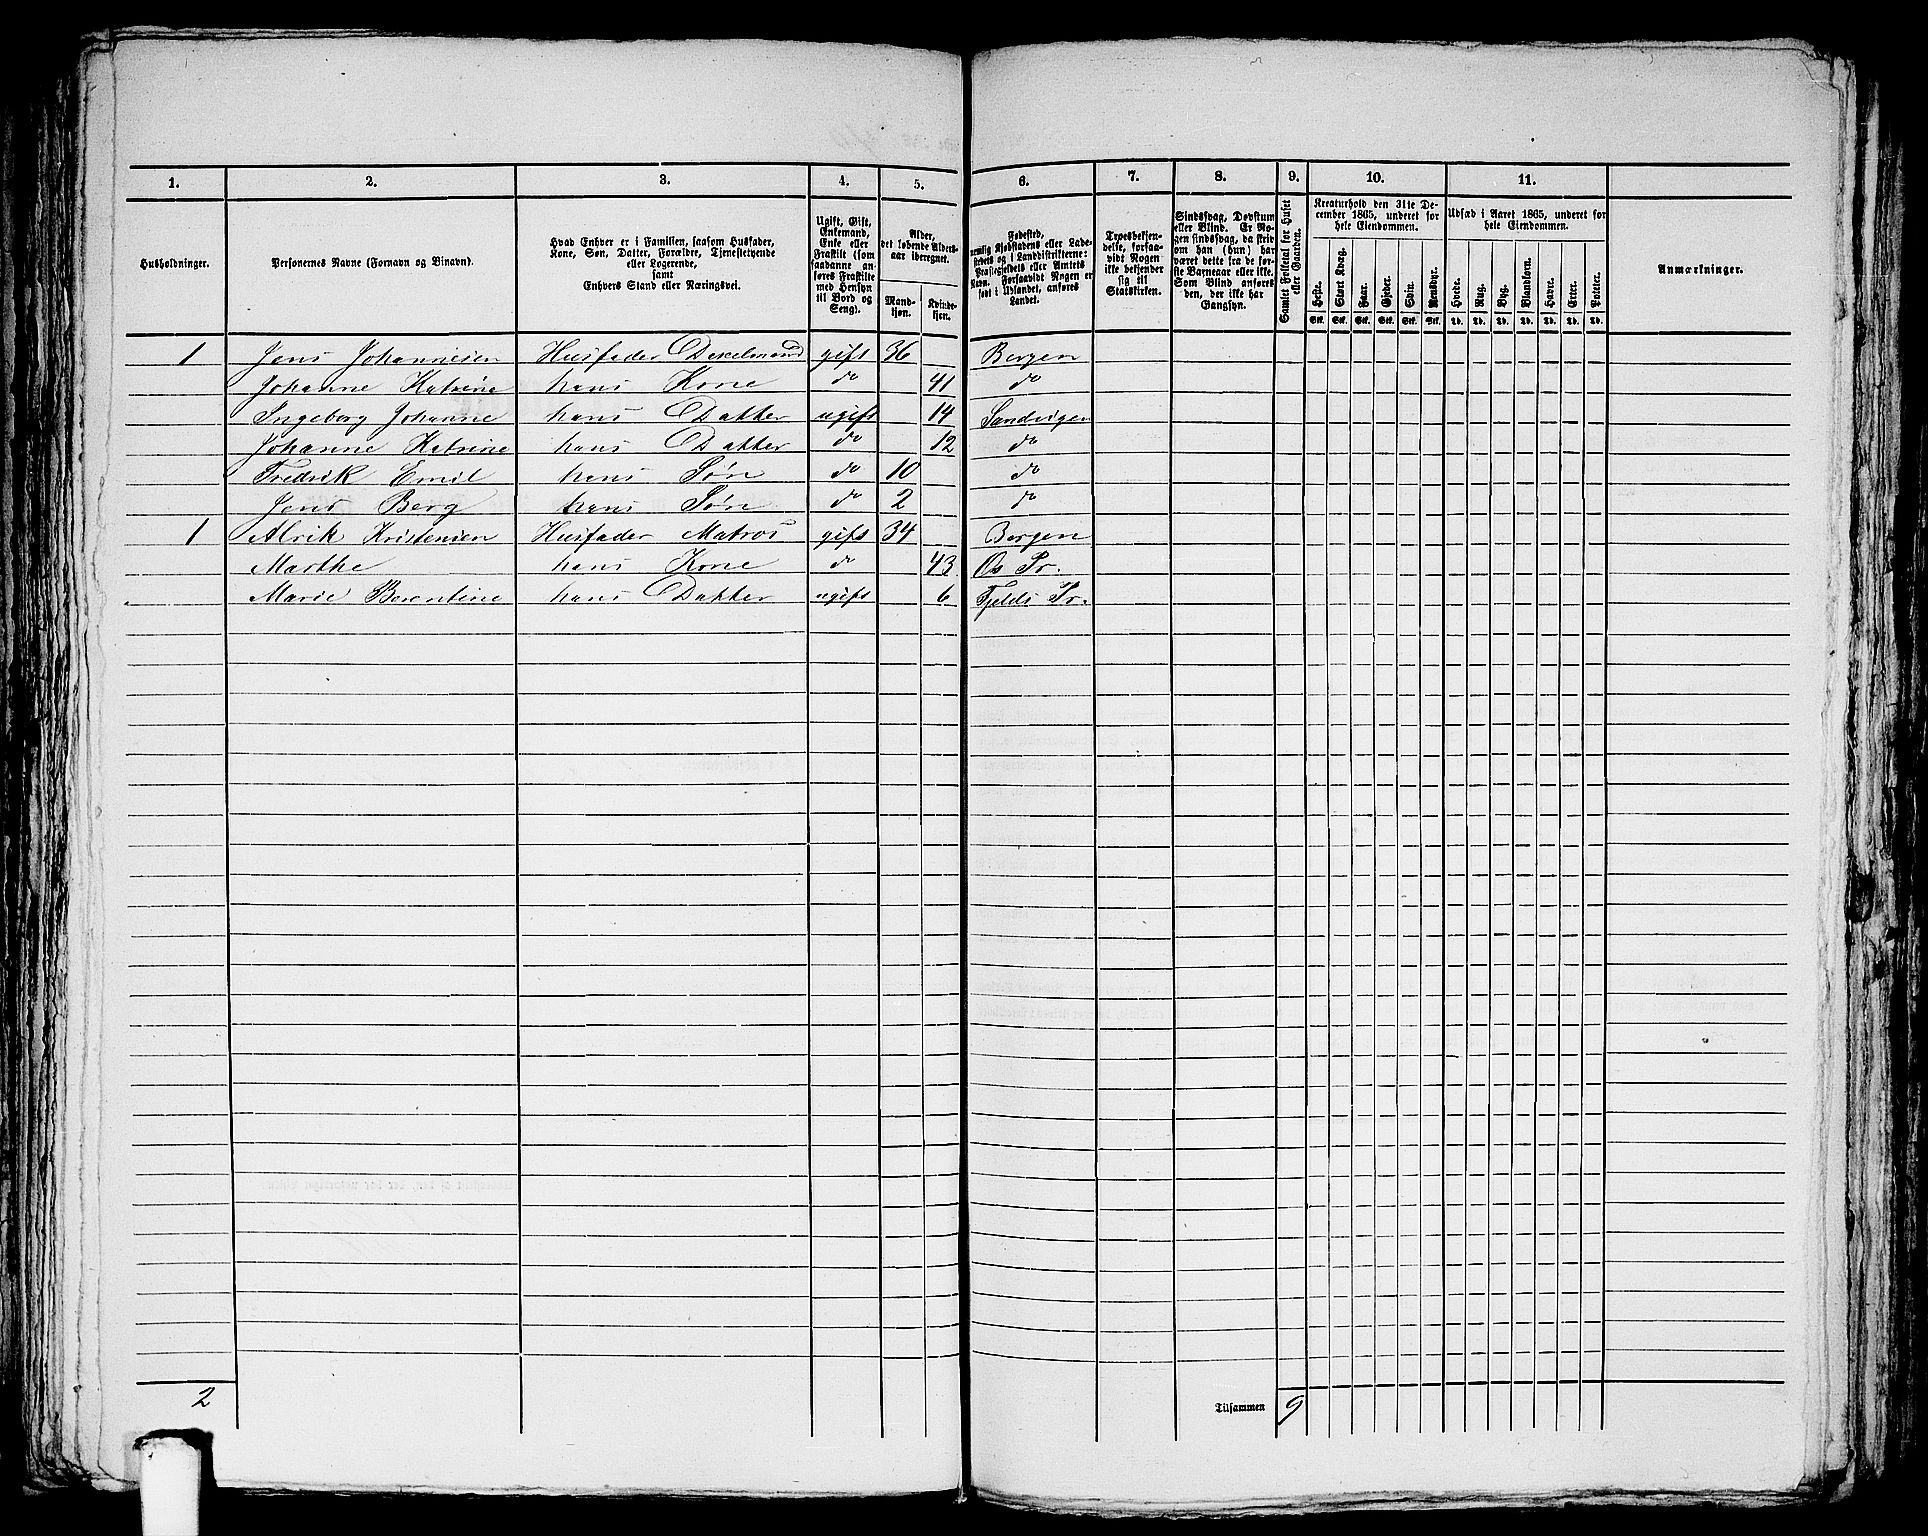 1. 2. 3. 4. 5. 6. 7. 8. 9. 10. 11.
Husholdninger.
Personernes Navne (Fornavn og Binavn).
Hvad Enhver er i Familien, saasom Husfader,
Kone, Søn, Datter, Forældre, Tjenestetyende
eller Logerende,
samt
Enhvers Stand eller Næringsvei.
Ugift, Gift,
Enkemand,
Enke eller
Fraskilt (som
saadanne an-
føres Fraskilte
med Hensyn
til Bord og
Seng).
Alder,
det løbende Alders-
aar iberegnet.
Mand-
kjøn.
Kvinde-
kjøn.
Fødested,
nemlig Kjøbstadens eller Lade-
stedets og i Landdistrikterne:
Præstegjeldets eller Amtets
Navn. Forsaavidt Nogen er
født i Udlandet, anføres
Landet.
Troesbekjen-
delse, forsaa-
vidt Nogen
ikke bekjender
sig til
Statskirken.
Sindssvag, Døvstum
eller Blind. Er No-
gen sindssvag, da skriv
om han (hun) har
været dette fra de før-
ste Barneaar eller ikke.
Som Blind anføres
den, der ikke har
Gangsyn.
Samlet Folketal for Huset
eller Gaarden.
Kreaturhold den 31te De-
cember 1865, underet for
hele Eiendommen.
Heste. Stort Kvæg. Faar. Gjeder. Svin. Rensdyr.
Stk. Stk. Stk. Stk. Stk. Stk.
Udsæd i Aaret 1865, underet for
hele Eiendommen.
Hvede. Rug. Byg. Blandkorn. Havre. Erter. Poteter.
Td. Td. Td. Td. Td. Td. Td.
Anmærkninger.
1 Jens Johannesen Husfader gift 36 Bergen
Johanne Katrine hans Kone do 41 do
Ingeborg Johanne hans Datter ugift 14 Sandvigen
Johanne Katrine hans Datter do 12 do
Fredrik Emil hans Søn do 10 do
Jens Berg hans Søn do 2 do
1 Alrik Kristensen Husfader Matros gift 34 Bergen
Marthe hans Kone do 43 Os Pr.
Marie Berentine hans Datter ugift 6 Fjelds Pr.
2 Tilsammen 9